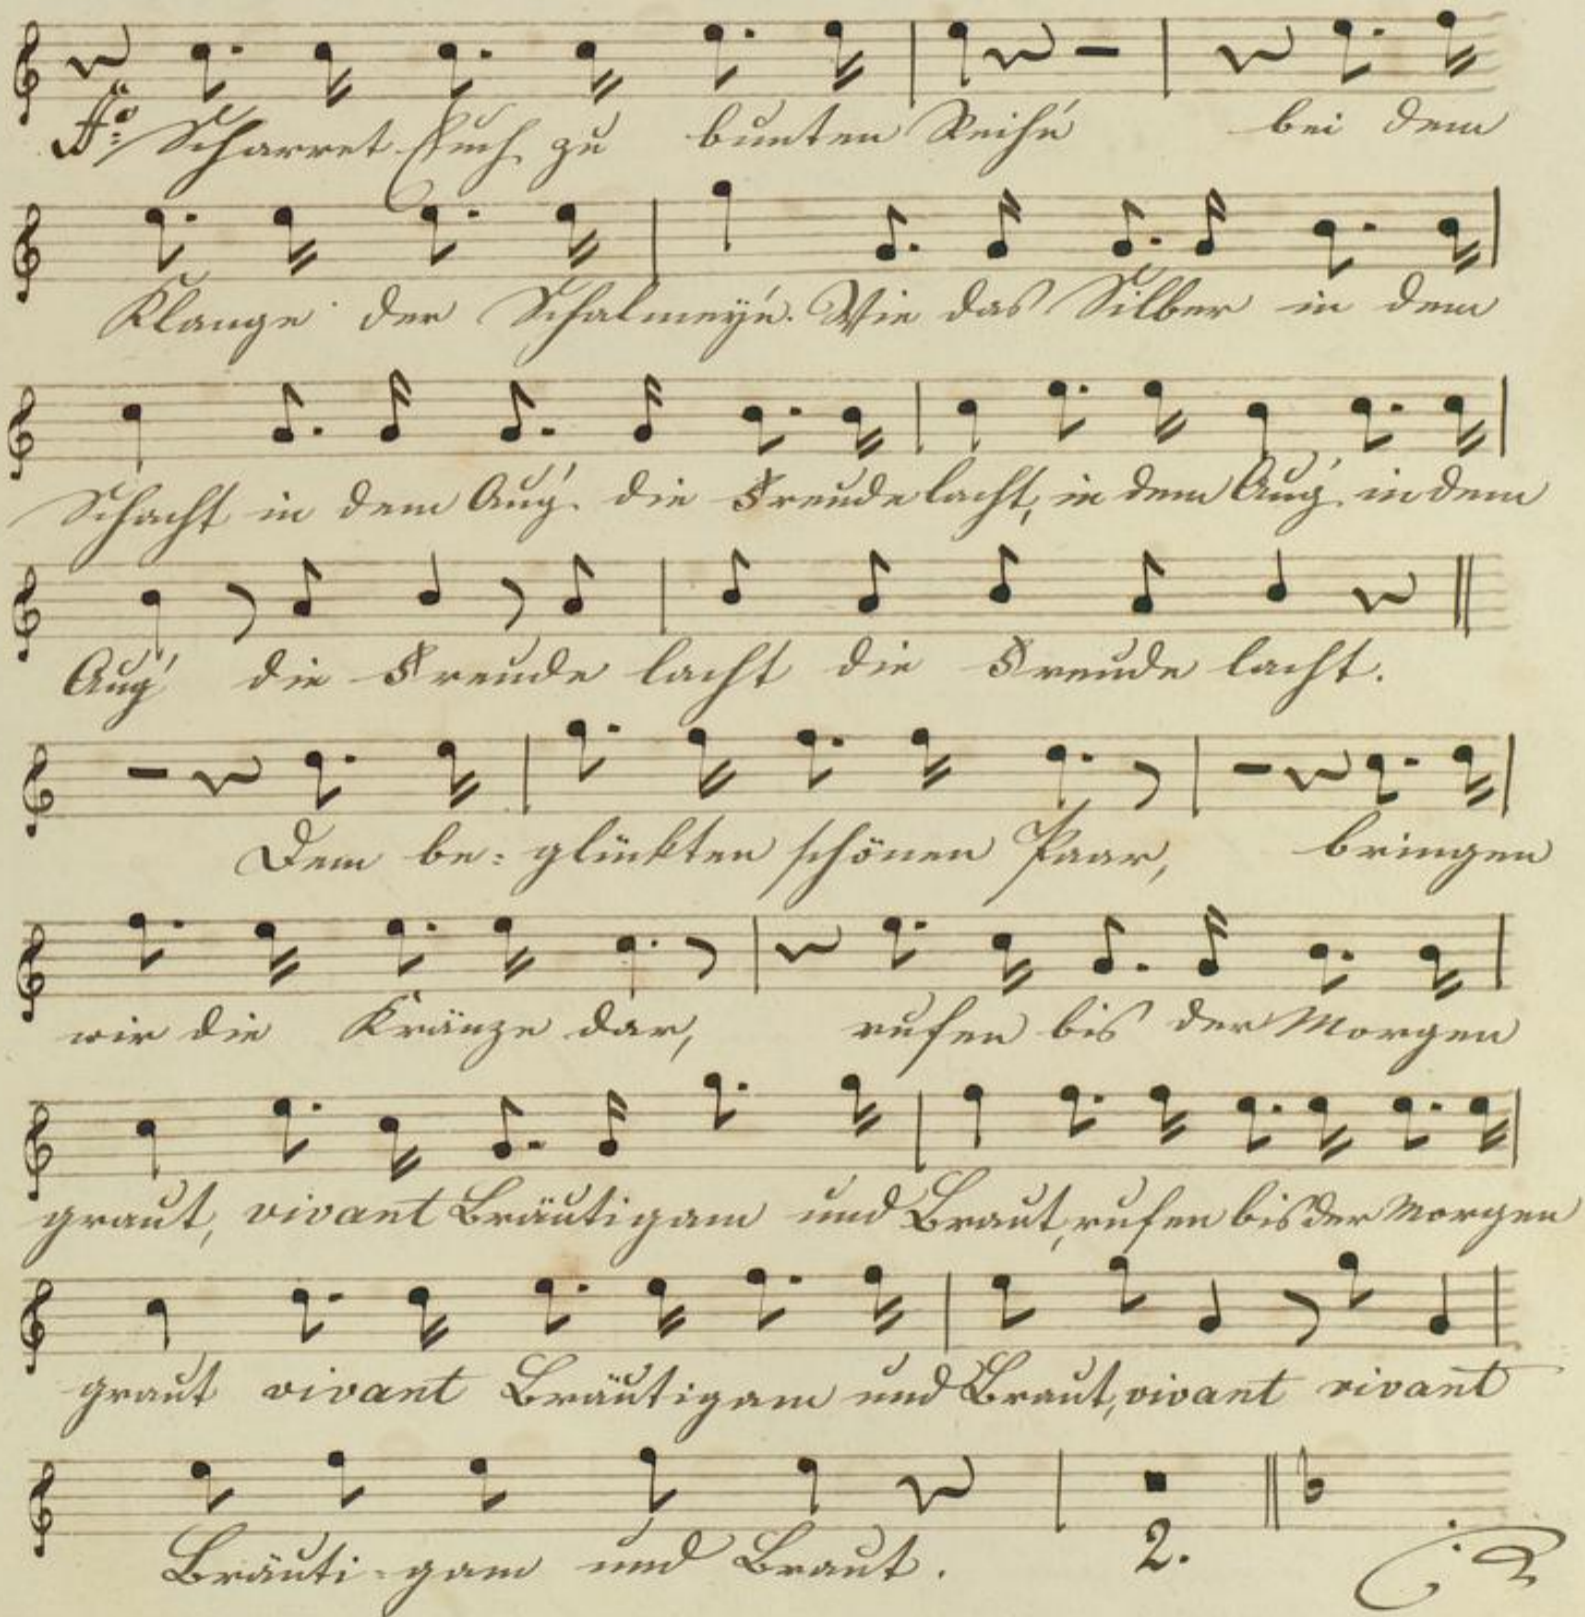 Fo: Scharret Euch zu bunten Reih'n bei dem
Klange der Schalmey'n. Wie das Silber in dem
Schacht in dem Aug' die Freude lacht, in dem Aug' in dem
Aug' die Freude lacht die Freude lacht.
Dem be= glückten schönen Paar, bringen
wir die Kränze dar, rufen bis der Morgen
graut, vivant Bräutigam und Braut, rufen bis der Morgen
graut vivant Bräutigam und Braut, vivant vivant
Bräuti=gam und Braut.
2.